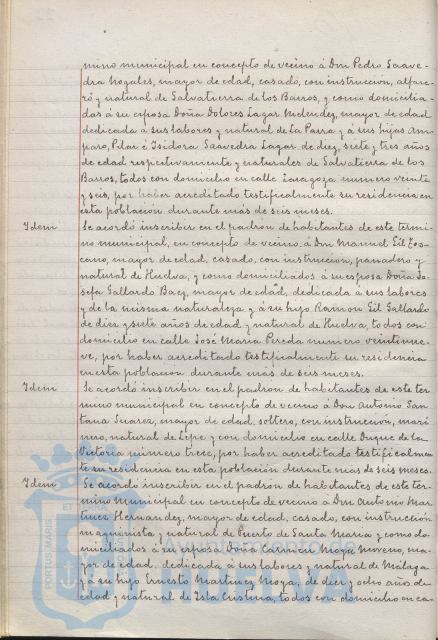 mino municipal en concepto de vecino á Don Pedro Saave-
dra Nogales, mayor de edad, casado, con instrucción, alfare-
ro y natural de Salvatierra de los Barros, y como domicilia-
dos á su esposa Doña Dolores Lagar Melendez, mayor de edad
dedicada á sus labores y natural de La Parra y á sus hijas Am-
paro, Pilar é Isidora Saavedra Lagar de diez, siete y tres años
de edad respectivamente y naturales de Salvatierra de los
Barros, todos con domicilio en calle Zaragoza numero veinte
y seis, por haber acreditado testificalmente su residencia en
esta población durante más de seis meses.
Idem Se acordó inscribir en el padron de habitantes de este termi-
no municipal, en concepto de vecino á Don Manuel Gil Tos-
cano, mayor de edad, casado, con instruccion, panadero y
natural de Huelva, y como domiciliados á su esposa Doña Jo-
sefa Gallardo Baez, mayor de edad, dedicada á sus labores
y de la misma naturaleza y á su hijo Ramon Gil Gallardo
de diez y siete años de edad y natural de Huelva, todos con
domicilio en calle José Maria Pereda numero veintinue-
ve, por haber acreditado testificalmente su residencia
en esta poblacion durante más de seis meses.
Idem Se acordó inscribir en el padron de habitantes de este ter
mino municipal en concepto de vecino á Don Antonio San-
tana Suarez, mayor de edad, soltero, con instrucción, mari
nero, natural de Lepe y con domicilio en calle Duque de la
Victoria número trece, por haber acreditado testificalmen
te su residencia en esta población durante más de seis meses.
Idem Se acordó inscribir en el padron de habitantes de este ter-
mino municipal en concepto de vecino á Don Antonio Mar-
tinez Hernandez, mayor de edad, casado, con instrucción
maquinista y natural de Puerto de Santa Maria y como do-
miciliados á su esposa Doña Carmen Moya Moreno, ma-
yor de edad, dedicada á sus labores y natural de Málaga
y á su hijo Ernesto Martinez Moya, de diez y ocho años de
edad y natural de Isla Cristina, todos con domicilio en ca-
PORTUS MARIS
ET